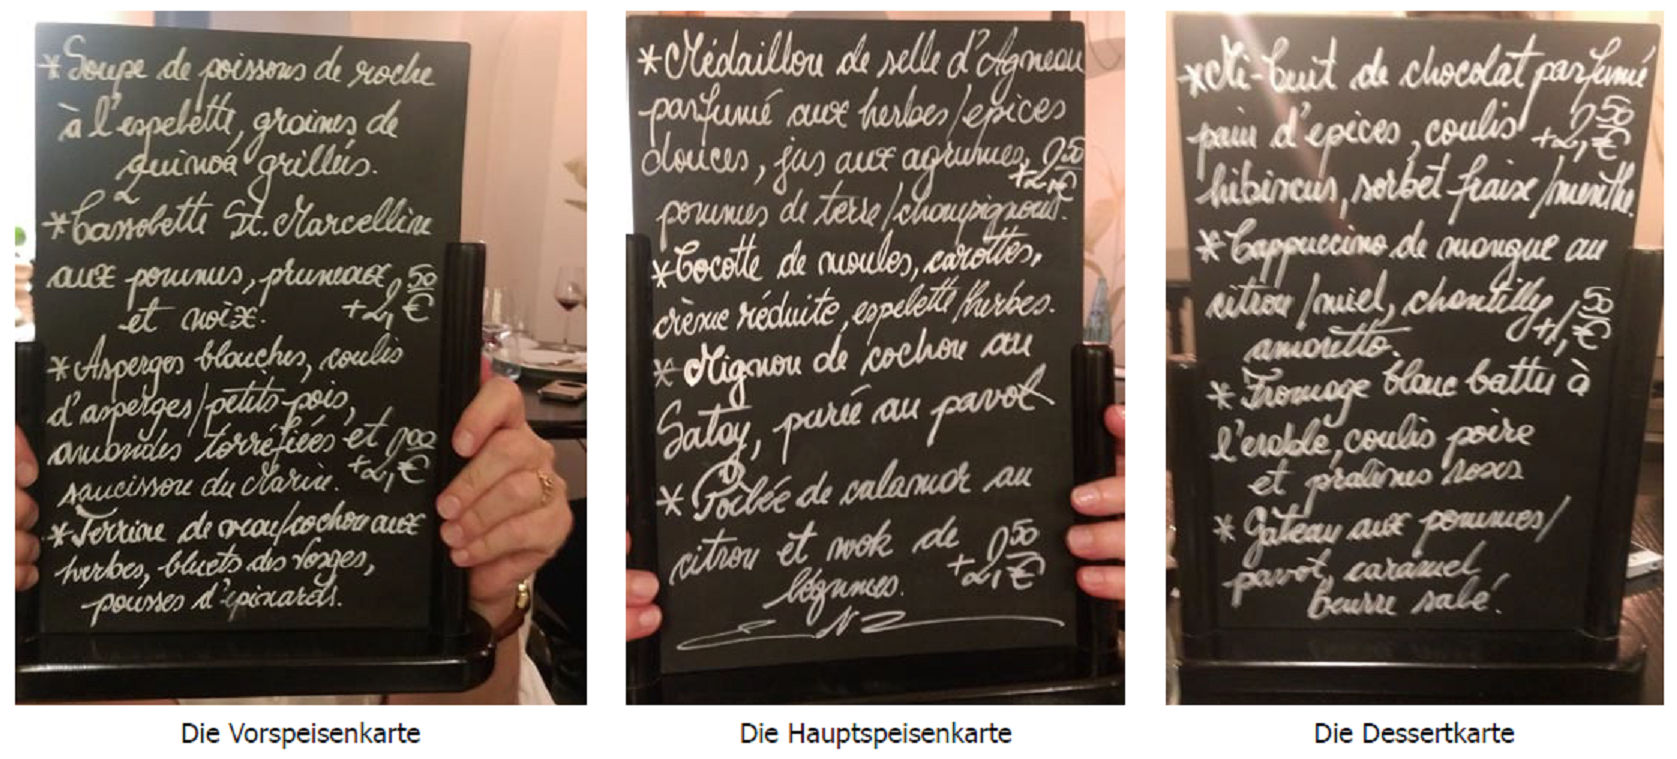 *Soupe de poissons de roche
à l'espelette, graines de
quinoa grillés.
*Cassolette St. Marcelline
aux pommes, pruneaux
et noix. +2,50 €
*Asperges blanches, coulis
d'asperges/petits-pois,
amandes torréfiées et
saucisson du Marin. +2,00 €
*Terrine de veau/cochon aux
herbes, bluets des Vosges,
pousses d'épinards.
Die Vorspeisenkarte
*Médaillon de selle d'Agneau
parfumé aux herbes/épices
douces, jus aux agrumes, +2,50 €
pommes de terre/champignons.
*Cocotte de moules, carottes,
crème réduite, espelette/herbes.
*Mignon de cochon au
Satay, purée au pavot
*Poêlée de calamar au
citron et wok de
légumes. +2,50 €
Die Hauptspeisenkarte
*Mi-cuit de chocolat parfumé
pain d'épices, coulis +2,50 €
hibiscus, sorbet fraise/menthe.
*Cappuccino de mangue au
citron/miel, chantilly +1,50 €
amaretto.
*Fromage blanc battu à
l'érable, coulis poire
et pralines roses
*Gâteau aux pommes/
pavot, caramel
beurre salé.
Die Dessertkarte